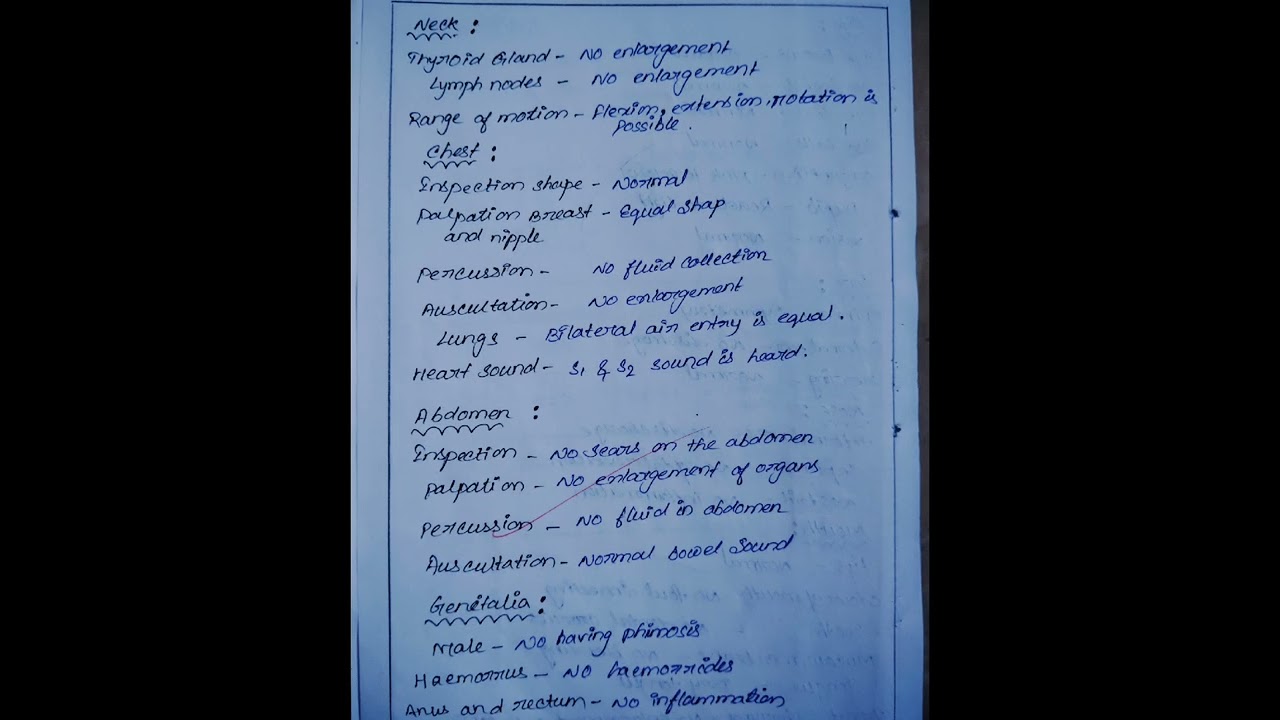 Neck :
Thyroid Gland - NO enlargement
Lymph nodes - NO enlargement
Range of motion - flexion, extension, rotation is
possible.
Chest :
Inspection shape - Normal
Palpation Breast - Equal shap
and nipple
percussion - NO fluid collection
Auscultation - NO enlargement
Lungs - Bilateral air entry is equal.
Heart sound - S1 & S2 sound is heard.
Abdomen :
Inspection - NO Scars on the abdomen
palpation - NO enlargement of organs
percussion - NO fluid in abdomen
Auscultation - Normal bowel sound
Genitalia :
Male - NO having phimosis
Haemorrus - NO haemorroides
Anus and rectum - NO inflammation